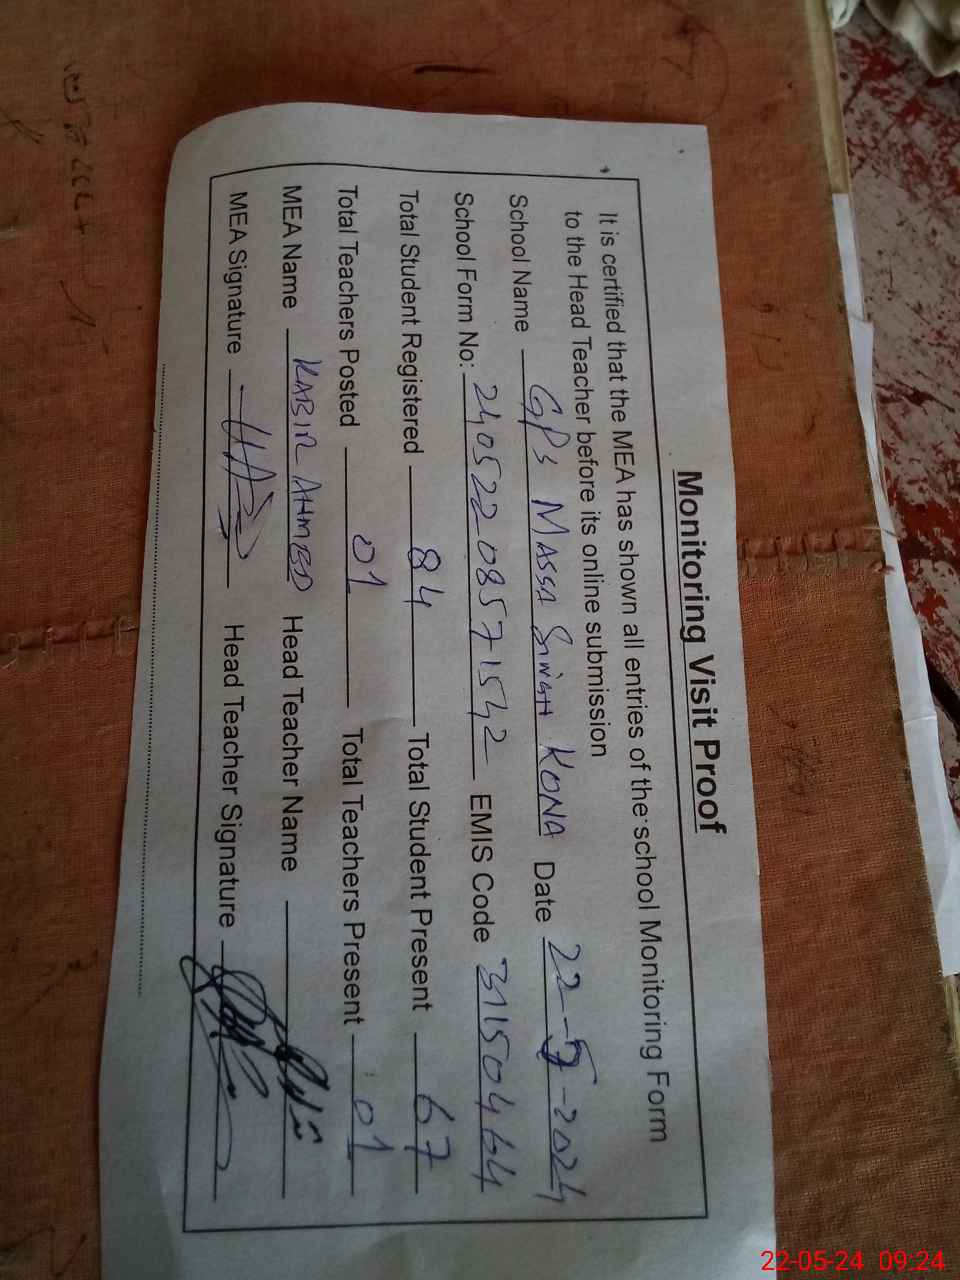 Monitoring Visit Proof
It is certified that the MEA has shown all entries of the school Monitoring Form
to the Head Teacher before its online submission
School Name GPS MASSA SINGH KONA Date 22-5-2024
School Form No: 24052208571542 EMIS Code 31150464
Total Student Registered 84 Total Student Present 67
Total Teachers Posted 01 Total Teachers Present 01
MEA Name KABIR AHMED Head Teacher Name
MEA Signature Head Teacher Signature
22-05-24 09:24